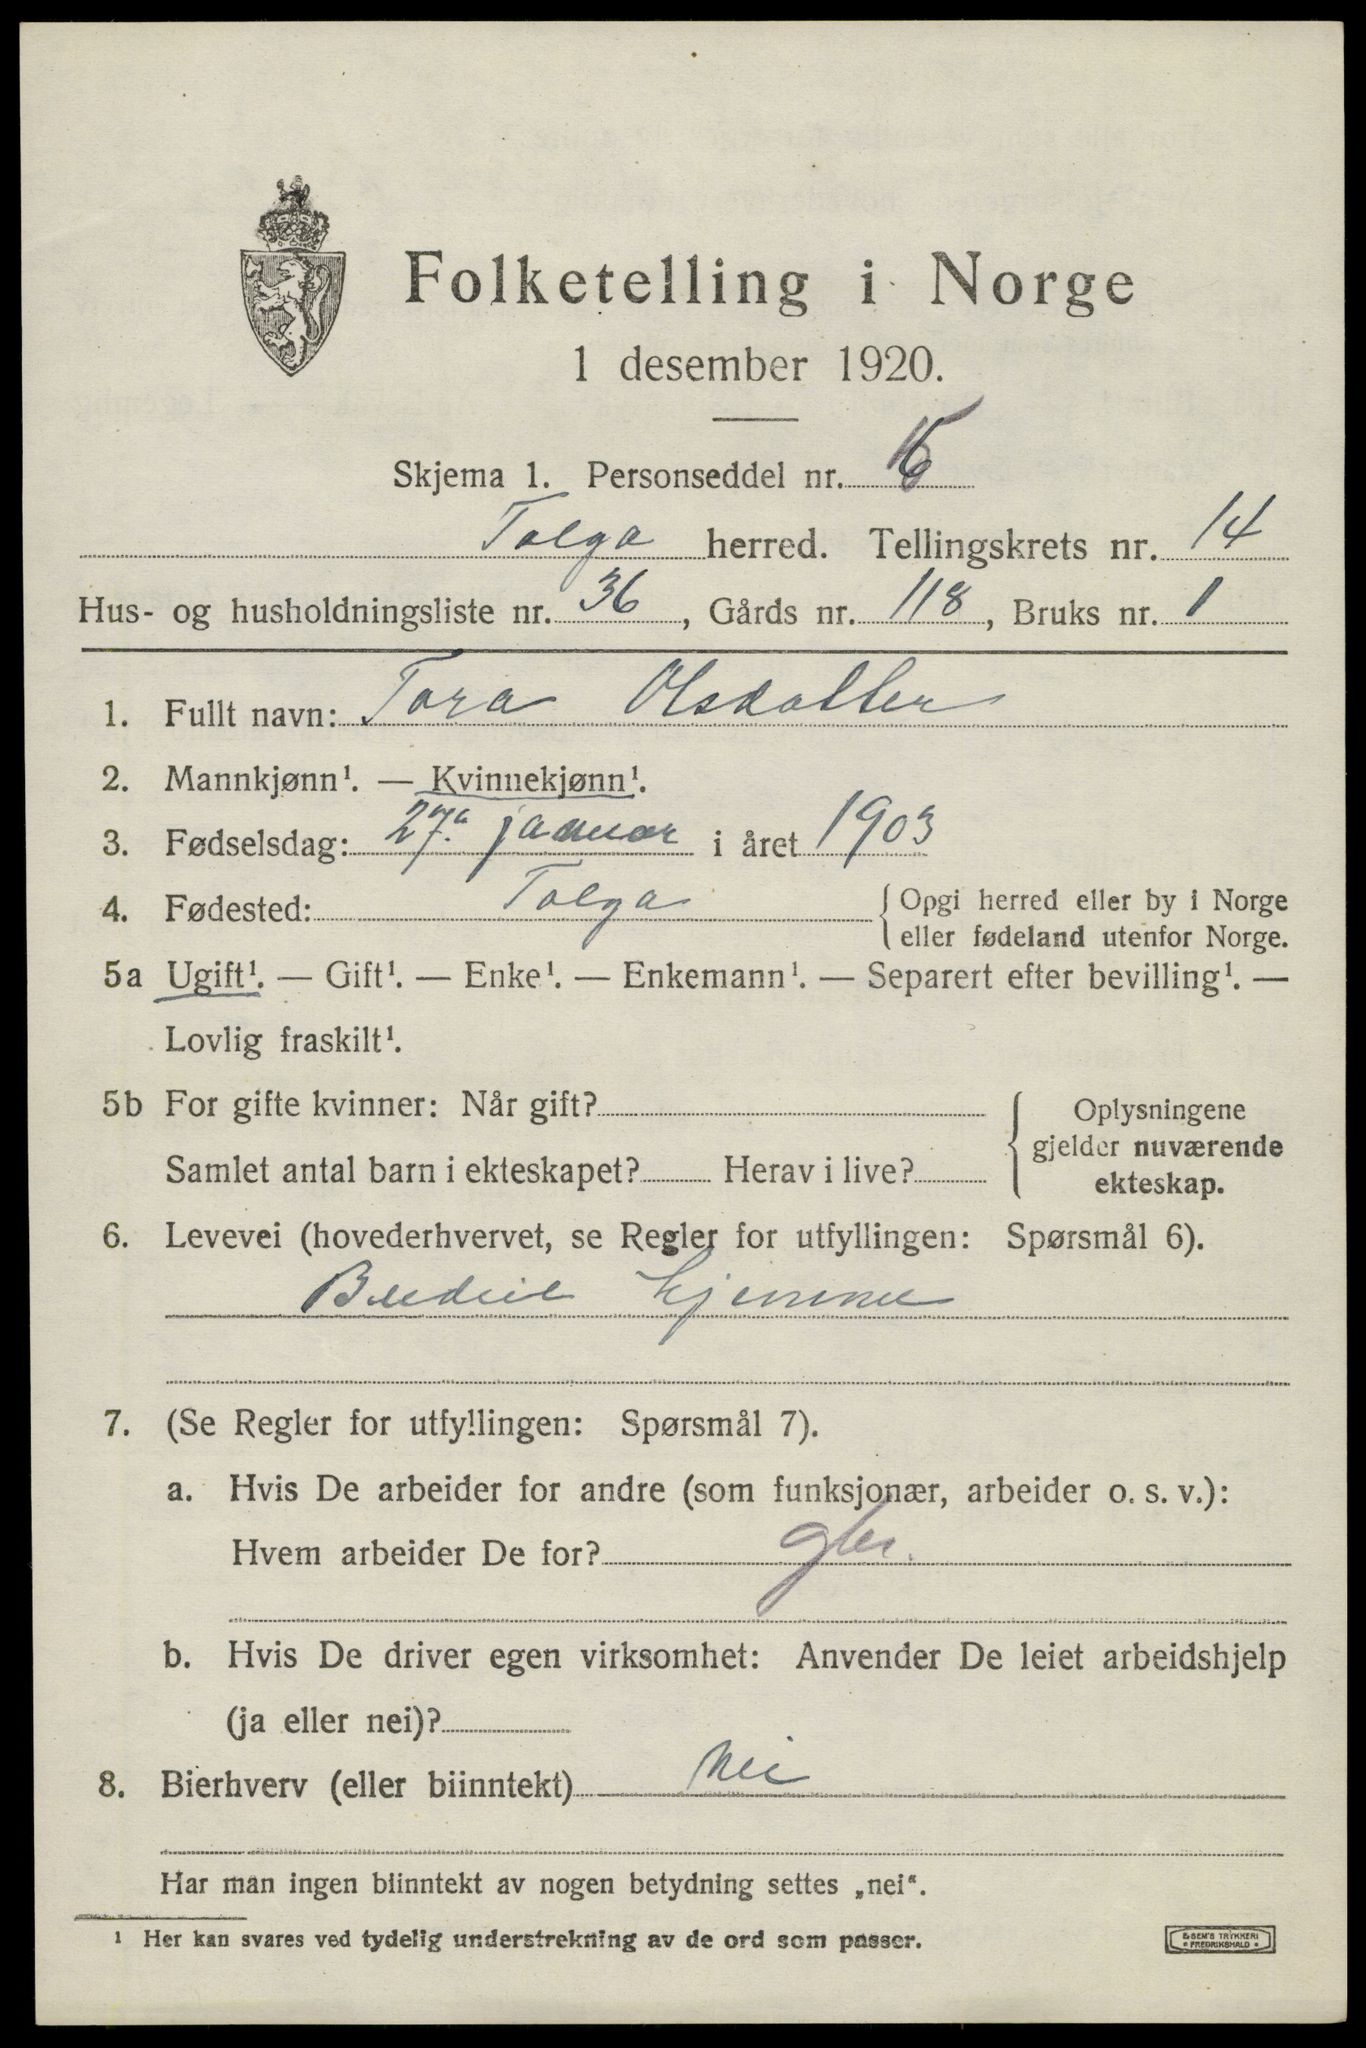 Folketelling i Norge
1 desember 1920.
Skjema 1. Personseddel nr.
Tolga herred. Tellingskrets nr. 14
Hus- og husholdningsliste nr. 36, Gårds nr. 118, Bruks nr. 1
1. Fullt navn: Tora Olsdatter
2. Mannkjønn¹. — Kvinnekjønn¹.
3. Fødselsdag: 27. januar i året 1903
4. Fødested: Tolga {Opgi herred eller by i Norge
eller fødeland utenfor Norge.
5a Ugift¹. — Gift¹. — Enke¹. — Enkemann¹. — Separert efter bevilling¹. —
Lovlig fraskilt¹.
5b For gifte kvinner: Når gift? {Oplysningene
gjelder nuværende
ekteskap.
Samlet antal barn i ekteskapet? Herav i live?
6. Levevei (hovederhvervet, se Regler for utfyllingen: Spørsmål 6).
Budeie hjemme
7. (Se Regler for utfyllingen: Spørsmål 7).
a. Hvis De arbeider for andre (som funksjonær, arbeider o. s. v.):
Hvem arbeider De for?
b. Hvis De driver egen virksomhet: Anvender De leiet arbeidshjelp
(ja eller nei)?
8. Bierhverv (eller biinntekt) Nei
Har man ingen biinntekt av nogen betydning settes „nei“.
¹ Her kan svares ved tydelig understrekning av de ord som passer.
E. SEM'S TRYKKERI
FREDRIKSHALD